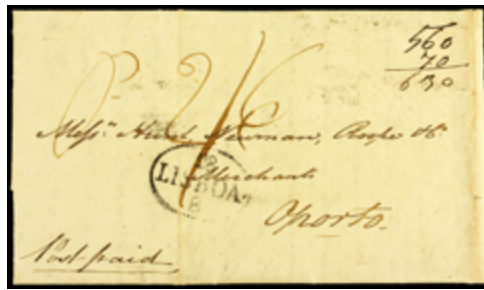 560
70
630
P 2/6
Messrs Hunt Newman, Roope & Co
Merchants
LISBOA
Oporto.
Post paid